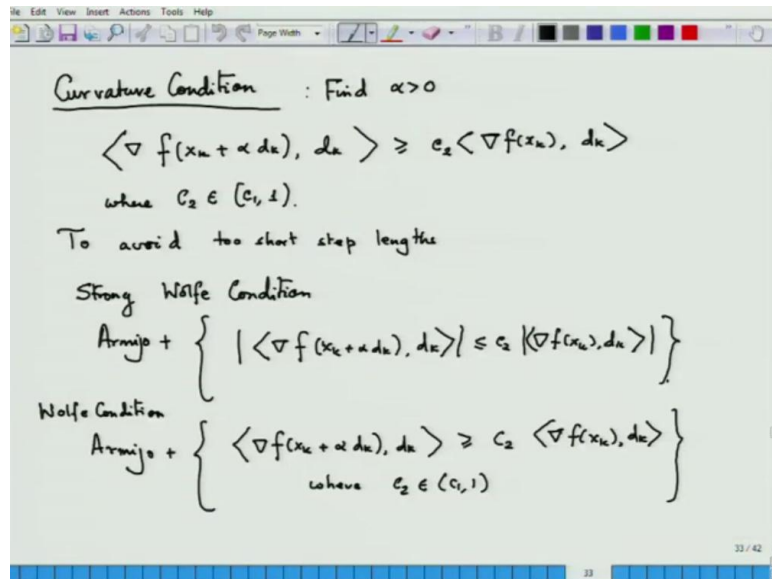 File Edit View Insert Actions Tools Help
Page Width
Curvature Condition : Find α>0
⟨∇ f(xₖ + α dₖ), dₖ⟩ ≥ c₂⟨∇f(xₖ), dₖ⟩
where C₂ ∈ (c₁, 1).
To avoid too short step lengths
Strong Wolfe Condition
Armijo + { |⟨∇f(xₖ + α dₖ), dₖ⟩| ≤ c₂ |⟨∇f(xₖ), dₖ⟩| }
Wolfe Condition
Armijo + { ⟨∇f(xₖ + α dₖ), dₖ⟩ ≥ C₂ ⟨∇f(xₖ), dₖ⟩ }
where c₂ ∈ (c₁, 1)
33 / 42
33